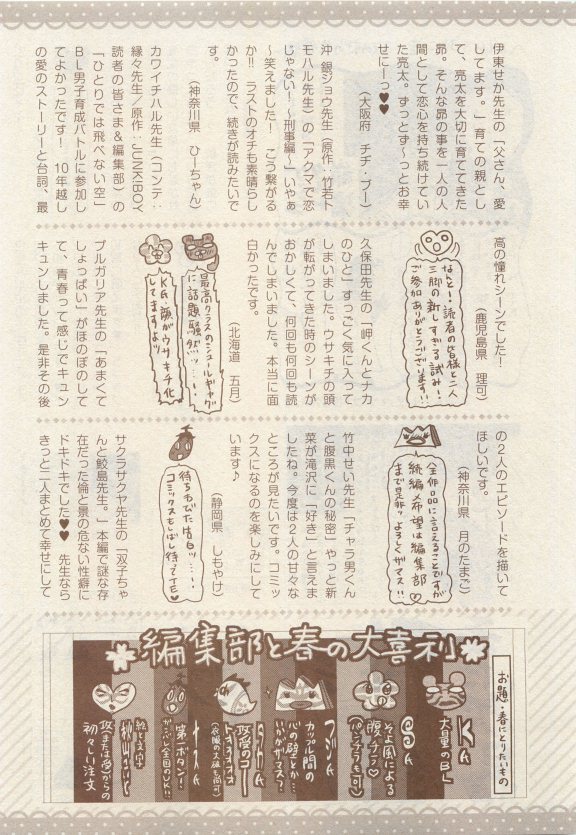 伊東せか先生の「父さん、愛
してます。」育ての親とし
て、亮太を大切に育ててきた
昴。そんな昴の事を一人の人
間として恋心を持ち続けてい
た亮太。ずっとず〜っとお幸
せにーっ♥♥
(大阪府 チチ・ブー)
沖 銀ジョウ先生(原作:竹若ト
モハル先生)の「アクマで恋
じゃない!〜刑事編〜」いやぁ
〜笑えました! こう繋がる
か!! ラストのオチも素晴らし
かったので、続きが読みたいで
す。
(神奈川県 ひーちゃん)
カワイチハル先生(コンテ:
緣々先生/原作:JUNKIBOY
読者の皆さま&編集部)の
「ひとりでは飛べない空」
BL男子育成バトルに参加し
てよかったです! 10年越し
の愛のストーリーと台詞、最
高の憧れシーンでした!
(鹿児島県 理可)
なんと!・読者の皆様と二人
三脚の新しすぎる試み!
ご参加ありがとうございます!!
久保田先生の「岬くんとナカ
のひと」すっごく気に入って
しまいました。ウサキチの頭
が転がってきた時のシーンが
おかしくて、何回も何回も読
んでしまいました。本当に面
白かったです。
(北海道 五月)
最高クラスのシュールギャグ
に話題騒然ッ…!
K氏・顔がウサキチ化
してますよッ
ブルガリア先生の「あまくて
しょっぱい」がほのぼのして
て、青春って感じでキュン
キュンしました。是非その後
の2人のエピソードを描いて
ほしいです。
(神奈川県 月のたまご)
全作品に言えることですが
続編希望は編集部
まで是非ッよろしくザマス!!
竹中せい先生「チャラ男くん
と腹黒くんの秘密」やっと新
菜が滝沢に「好き」と言えま
したね。今度は2人の甘々な
ところが見たいです。コミッ
クスになるのを楽しみにして
います♪
(静岡県 しもやけ)
待ちわびた告白ッ…!
コミックスもしばし待ってTE♥
サクラサクヤ先生の「双子ちゃ
んと鮫島先生。」本編で謎な存
在だった倫と景の危ない性癖に
ドキドキでした♥♥ 先生なら
きっと二人まとめて幸せにして
編集部と春の大喜利
お題・春にとりたいもの
K氏
大量のBL
S氏
そよ風による
腹チラ♡
(パンチラも可)
フジ氏
カップル間の
心の壁とか…
いかがザマス?
攻受のコート
(衣服の大抵も可)
第一ボタン!
絵と文字
攻(または受)からの
初々しい注文